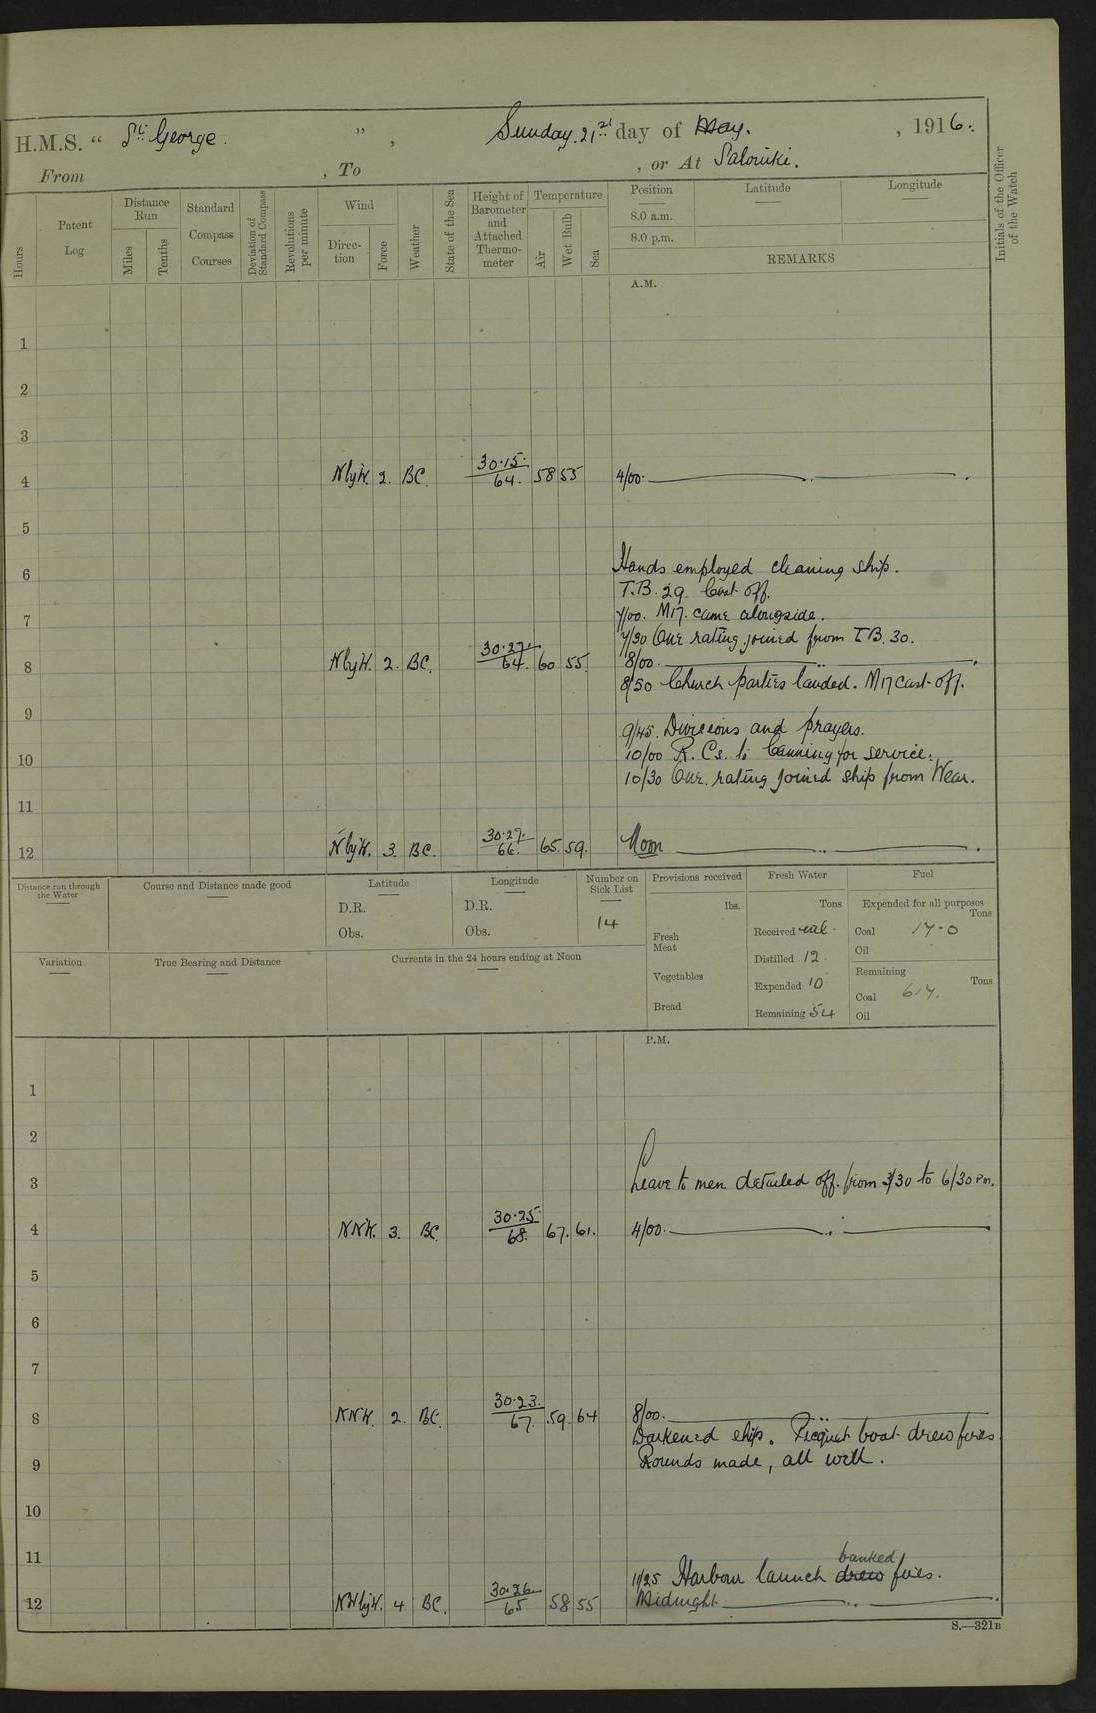 H.M.S. “ St. George. ” , Sunday. 21st day of May. , 1916.
From , To , or At Salonika.
Hours
Patent Log
Distance Run
Miles
Tenths
Standard Compass Courses
Deviation of Standard Compass
Revolutions per minute
Wind
Direc-tion
Force
Weather
State of the Sea
Height of Barometer and Attached Thermo-meter
Temperature
Air
Wet Bulb
Sea
Position
Latitude
Longitude
8.0 a.m.
8.0 p.m.
REMARKS
Initials of the Officer of the Watch
A.M.
1
2
3
4 NbyW. 2. BC. 30.15. 64. 58 55 4/00.
5
6 Hands employed cleaning ship.
T.B. 29. Cast off.
7 7/00. M17. came alongside.
7/30 One rating joined from T.B. 30.
8 NbyW. 2. BC. 30.27. 64. 60 55. 8/00.
8/50 Church parties landed. M17 cast off.
9
9/45. Divisions and prayers.
10 10/00 R.Cs. to Canning for service.
10/30 One rating joined ship from Wear.
11
12 NbyW. 3. BC. 30.27. 66. 65. 59. Noon
Distance run through the Water
Course and Distance made good
Latitude
D.R.
Obs.
Longitude
D.R.
Obs.
Number on Sick List
14
Provisions received
lbs.
Fresh Meat
Vegetables
Bread
Fresh Water
Tons
Received
Distilled 12.
Expended 10
Remaining 54
Fuel
Expended for all purposes
Tons
Coal 17.0
Oil
Remaining
Tons
Coal 617.
Oil
Variation
True Bearing and Distance
Currents in the 24 hours ending at Noon
P.M.
1
2
3 Leave to men detailed off. from 3/30 to 6/30 PM.
4 NNW. 3. BC. 30.25. 68. 67. 61. 4/00.
5
6
7
8 NNW. 2. BC. 30.23. 67. 59. 64 8/00.
Darkened ship. Picquet boat drew fires
9 Rounds made, all well.
10
11
banked
11/25 Harbour launch drew fires.
12 NWbyW. 4 BC. 30.26. 65 58 55 Midnight
S.—321B